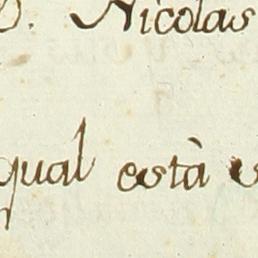 D. Nicolas
qual està